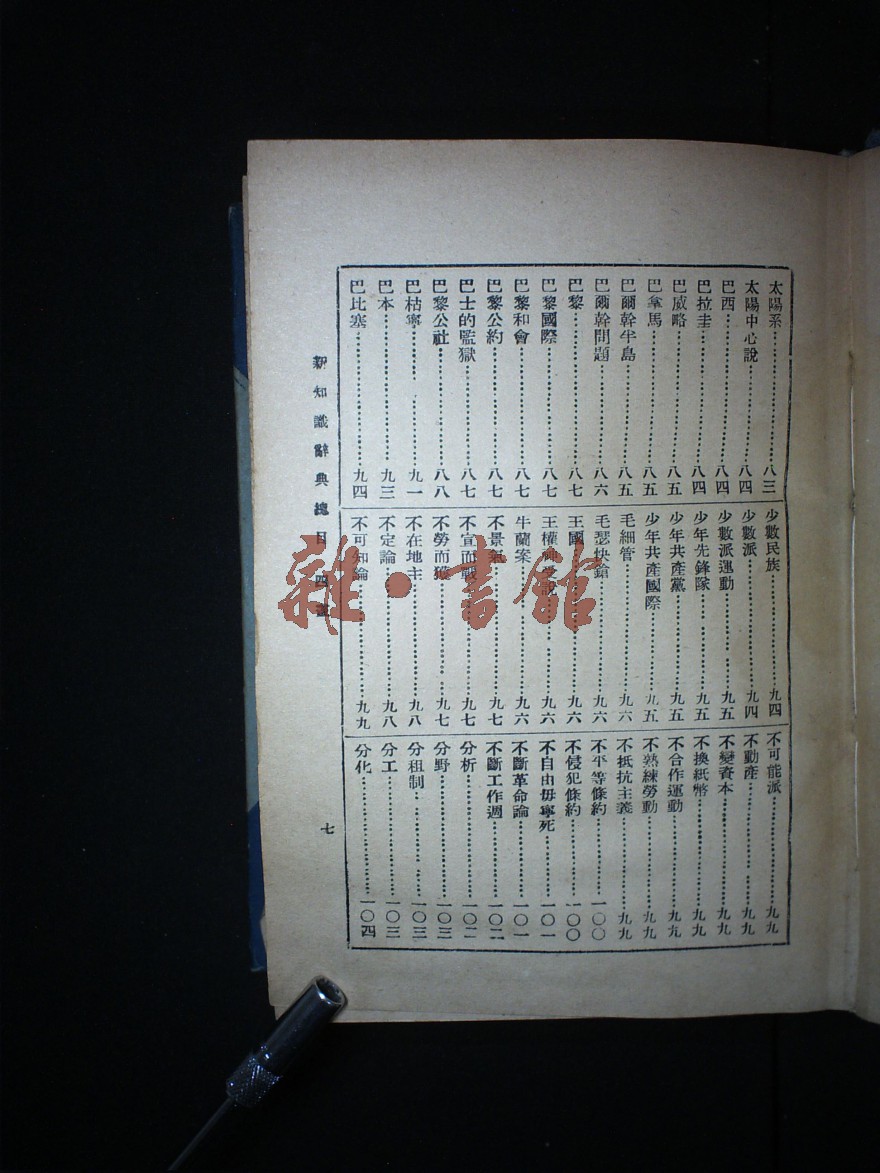 太陽系……八三
太陽中心說……八四
巴西……八四
巴拉圭……八四
巴威略……八五
巴拿馬……八五
巴爾幹半島……八五
巴爾幹問題……八六
巴黎……八七
巴黎國際……八七
巴黎和會……八七
巴黎公約……八七
巴士的監獄……八七
巴黎公社……八八
巴枯寧……九一
巴本……九三
巴比塞……九四
少數民族……九四
少數派……九四
少數派運動……九五
少年先鋒隊……九五
少年共產黨……九五
少年共產國際……九五
毛細管……九六
毛瑟快鎗……九六
王國……九六
王權神授說……九六
牛蘭案……九六
不景氣……九七
不宣而戰……九七
不勞而獲……九七
不在地主……九八
不定論……九八
不可知論……九九
不可能派……九九
不動產……九九
不變資本……九九
不換紙幣……九九
不合作運動……九九
不熟練勞動……九九
不抵抗主義……九九
不平等條約……一〇〇
不侵犯條約……一〇〇
不自由毋寧死……一〇一
不斷革命論……一〇一
不斷工作週……一〇二
分析……一〇二
分野……一〇三
分租制……一〇三
分工……一〇三
分化……一〇四
新知識辭典總目 四畫
七
雜·書館